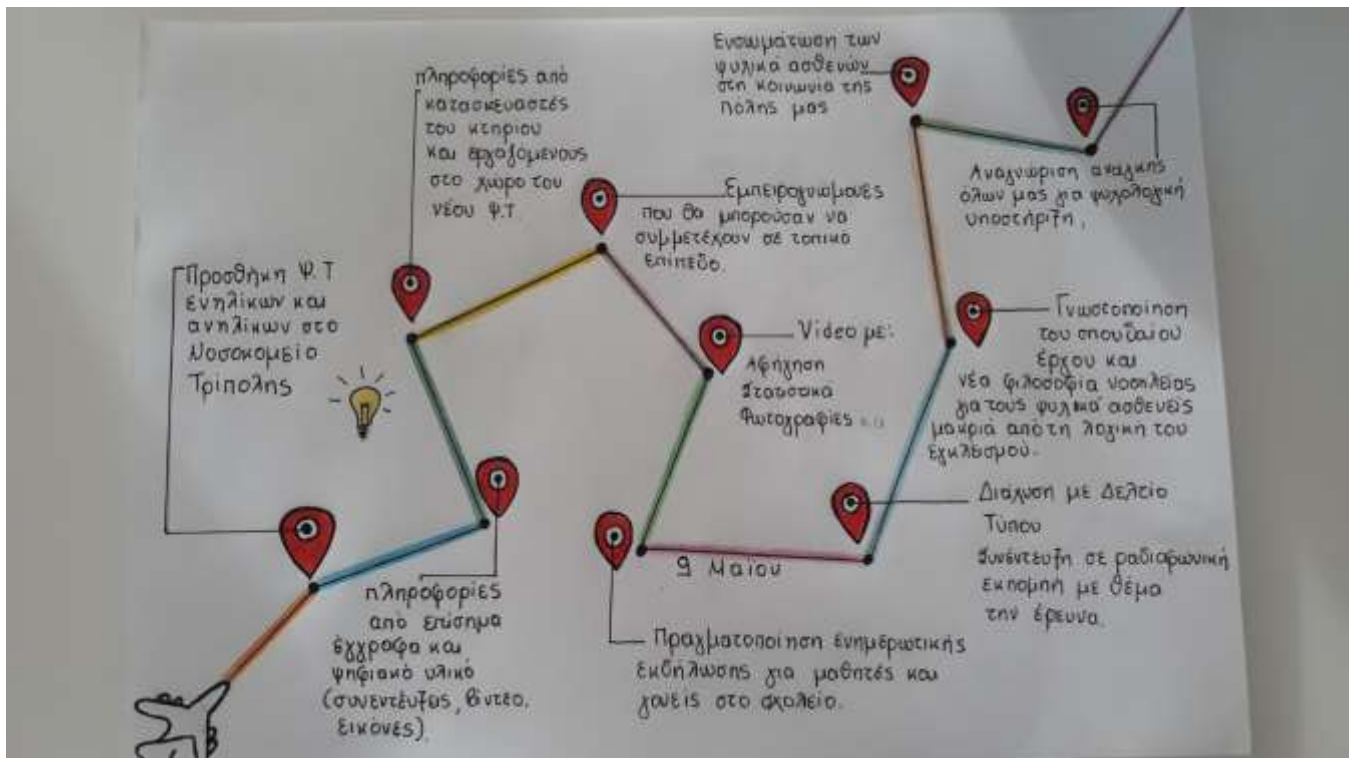 Προσθήκη Ψ.Τ
ενηλίκων και
ανηλίκων στο
Νοσοκομείο
Τρίπολης
πληροφορίες
από επίσημα
έγγραφα και
ψηφιακό υλικό
(συνεντεύξεις, βιντεο,
εικόνες).
πληροφορίες από
κατασκευαστές
του κτηρίου
και εργαζομενους
στο χωρο του
νέου Ψ.Τ.
Εμπειρογνωμονες
που θα μπορούσαν να
συμμετέχουν σε τοπικό
επίπεδο.
Video με:
Αφήγηση
Στατιστικα
Φωτογραφίες κ.α
Πραγματοποίηση ενημερωτικής
εκδήλωσης για μαθητές και
γονείς στο σχολείο.
9 Μαΐου
Διάχυση με Δελτίο
Τύπου
Συνέντευξη σε ραδιοφωνική
εκπομπή με θέμα
την έρευνα.
Γνωστοποίηση
του σπουδαίου
έργου και
νέα φιλοσοφία νοσηλείας
για τους ψυχικά ασθενείς
μακριά από τη λογική του
εγκλεισμού.
Ενσωμάτωση των
ψυχικά ασθενών
στη κοινωνία της
πόλης μας
Αναγνώριση αναγκης
όλων μας για ψυχολογική
υποστήριξη.